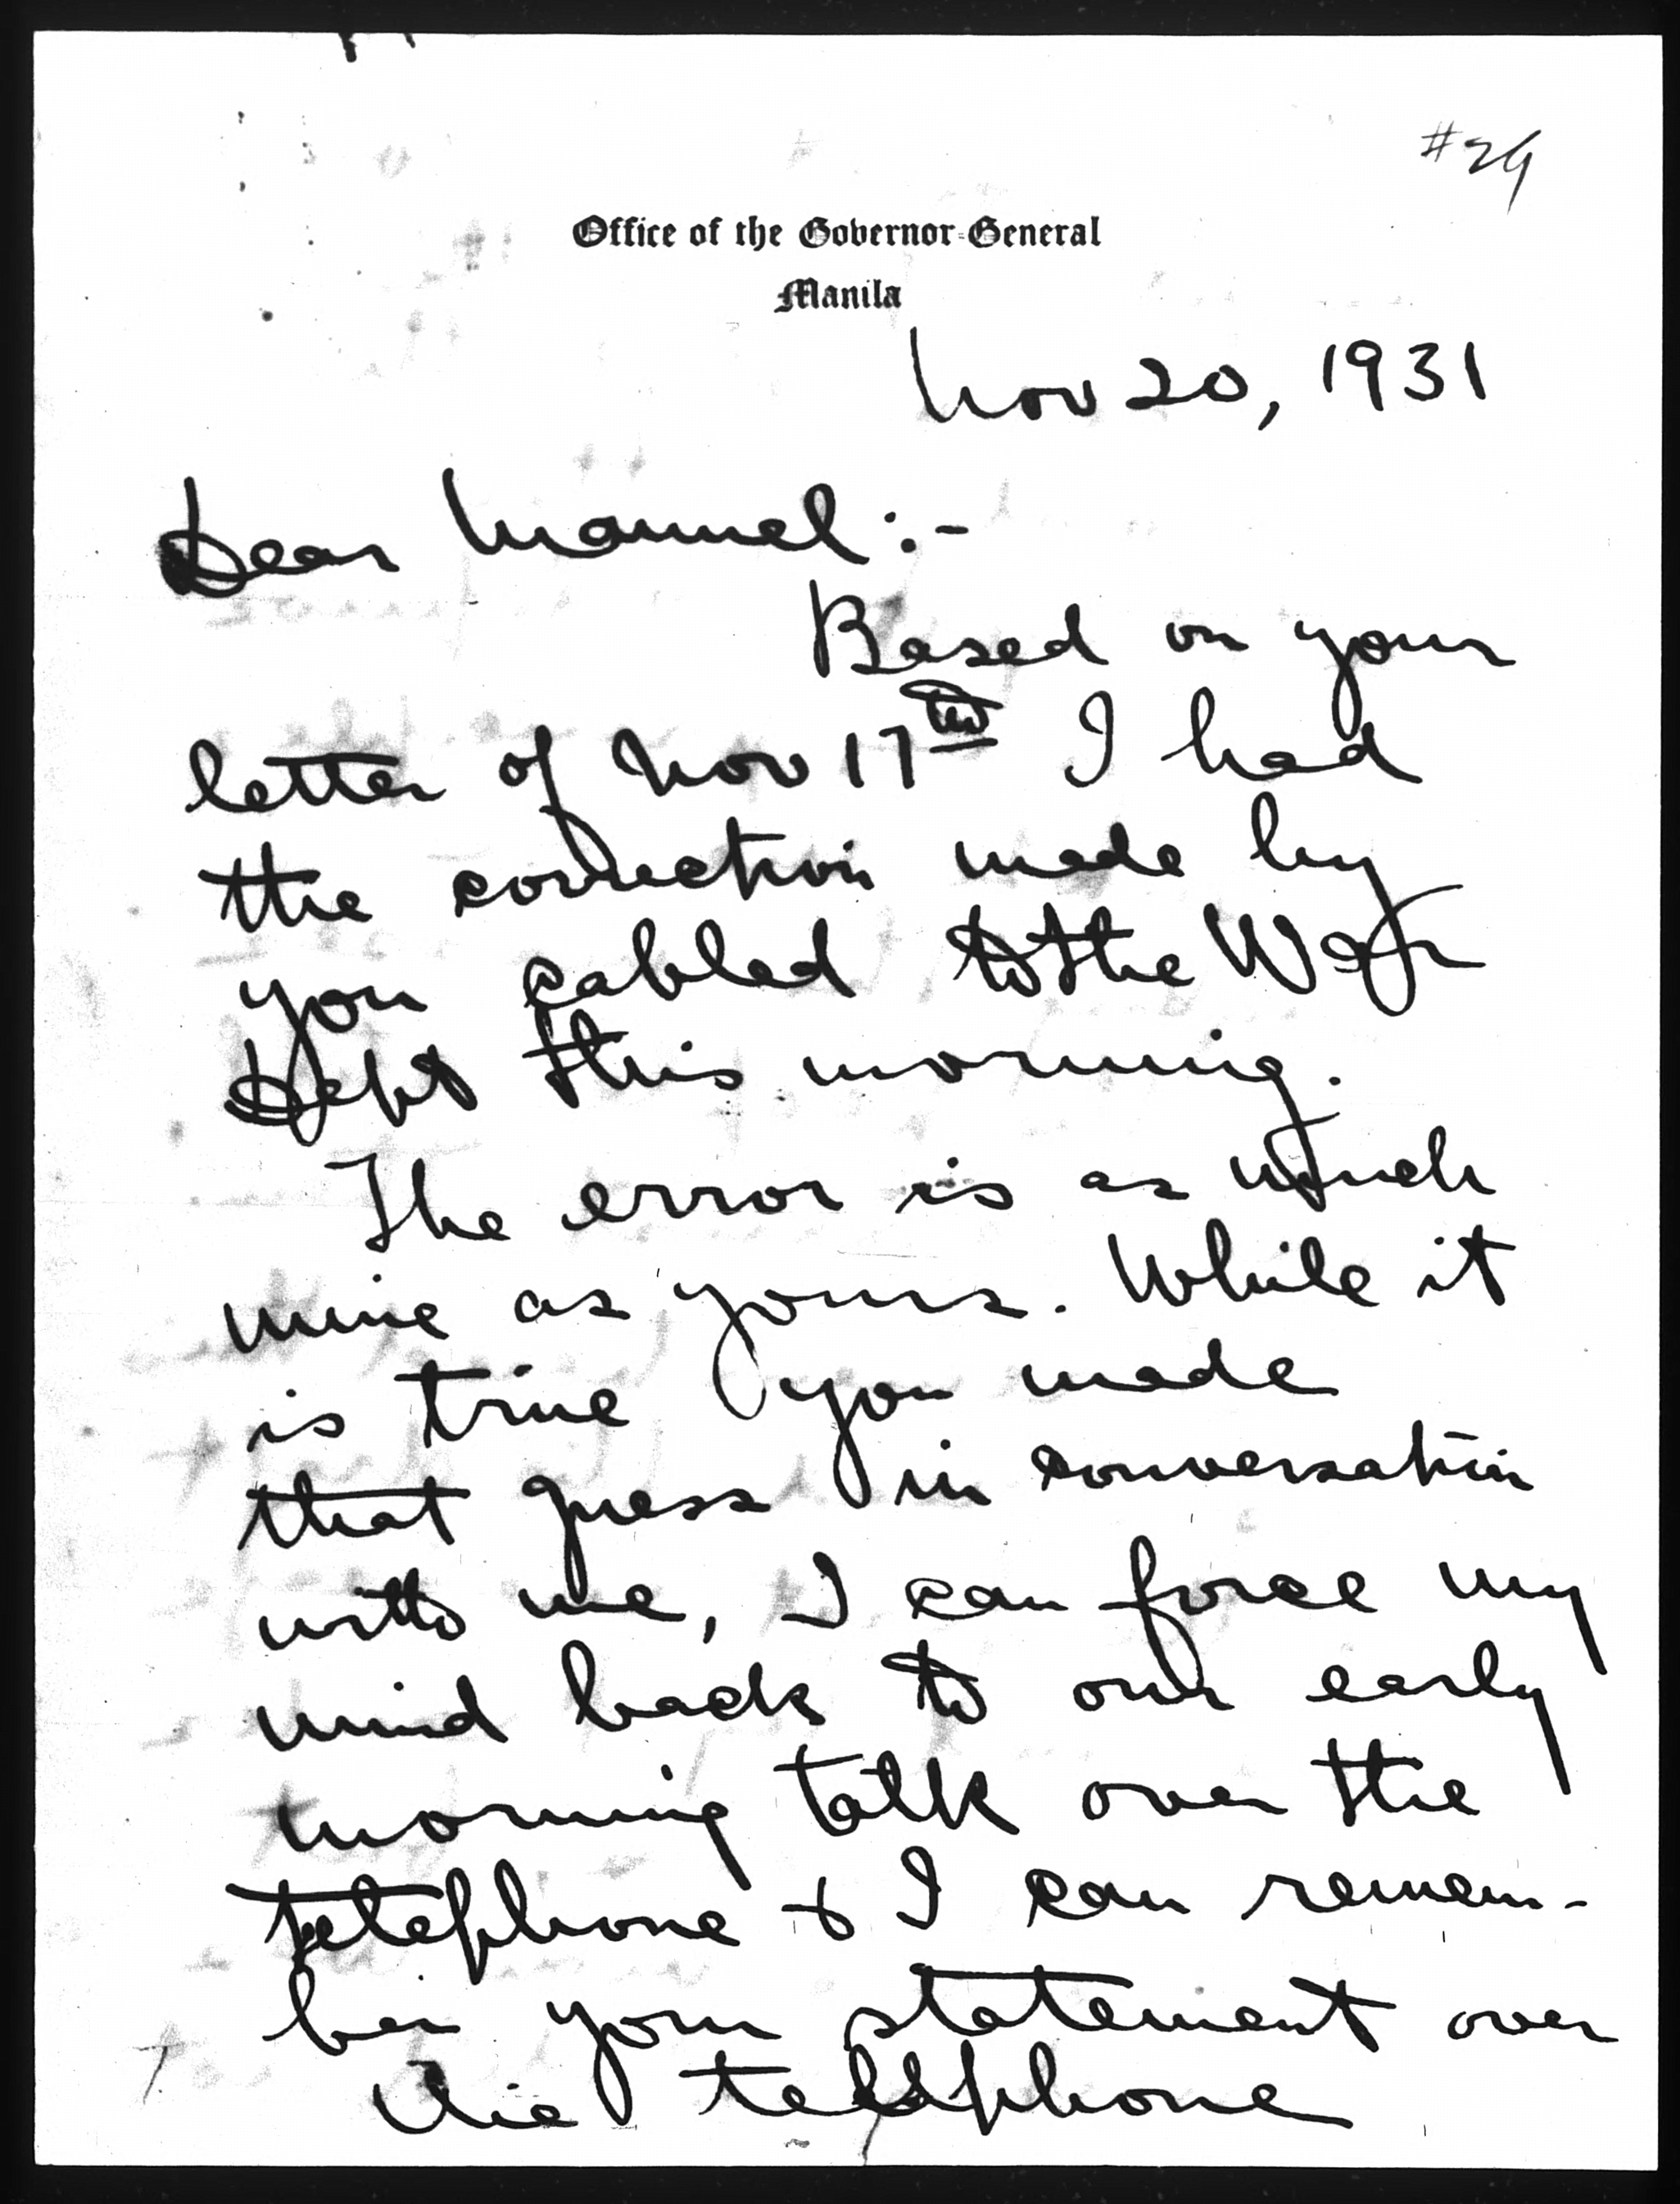 #29
Office of the Governor-General
Manila
Nov 20, 1931
Dear Manuel:-
Based on your
letter of Nov 17th I had
the correction made by
you cabled to the War
Dept this morning.
The error is as much
mine as yours. While it
is true you made
that guess in conversation
with me, I can force my
mind back to our early
morning talk over the
telephone & I can remem-
ber your statement over
the telephone